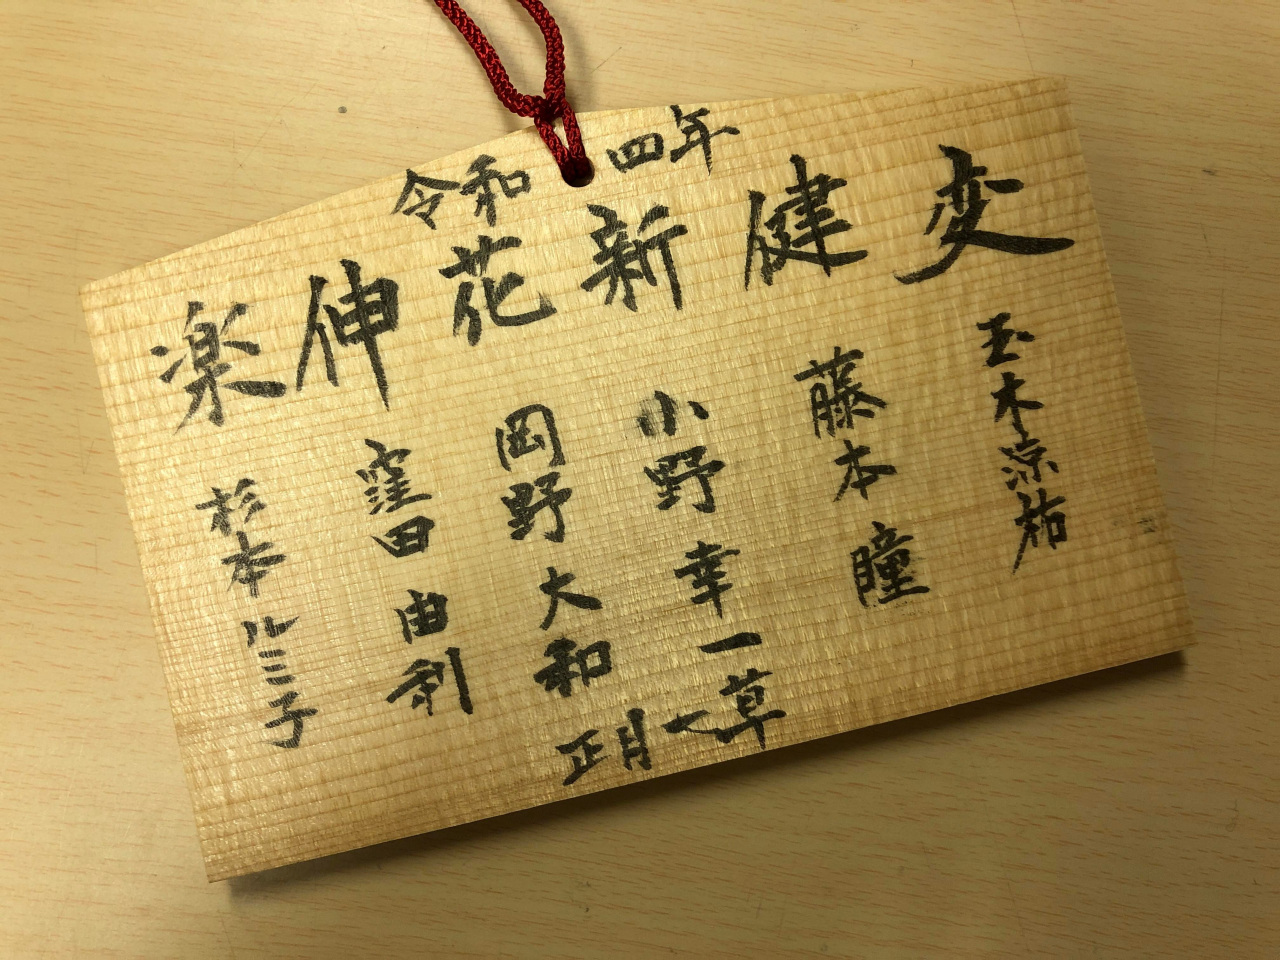 令和四年
変
健
新
花
伸
楽
玉木涼祐
藤本瞳
小野幸一
岡野大和
窪田由利
杉本ルミ子
正月
草